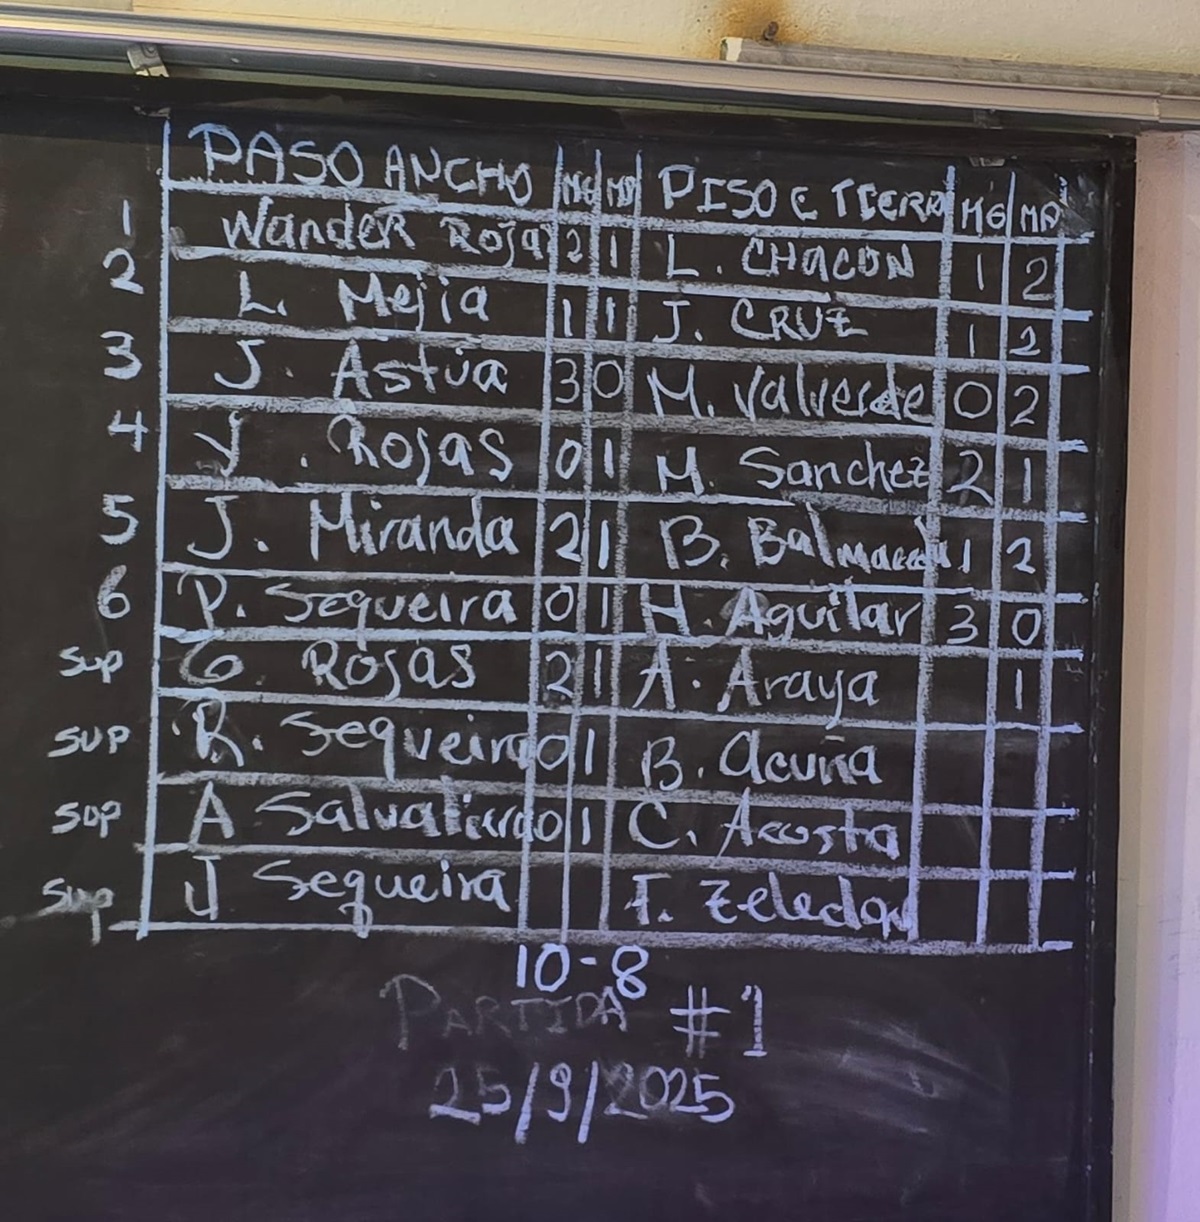 PASO ANCHO MG MP PISO E TIERRA MG MP
1 Wander Rojas 2 1 L. CHACON 1 2
2 L. Mejia 1 1 J. CRUZ 1 2
3 J. Astua 3 0 M. Valverde 0 2
4 Y. Rojas 0 1 M. Sanchez 2 1
5 J. Miranda 2 1 B. Balmaceda 1 2
6 P. Sequeira 0 1 H. Aguilar 3 0
Sup G Rojas 2 1 A. Araya 1
SUP R. Sequeira 0 1 B. Acuña
SUP A Salvatierra 0 1 C. Acosta
Sup J Sequeira F. Zeledon
10-8
PARTIDA #1
25/9/2025